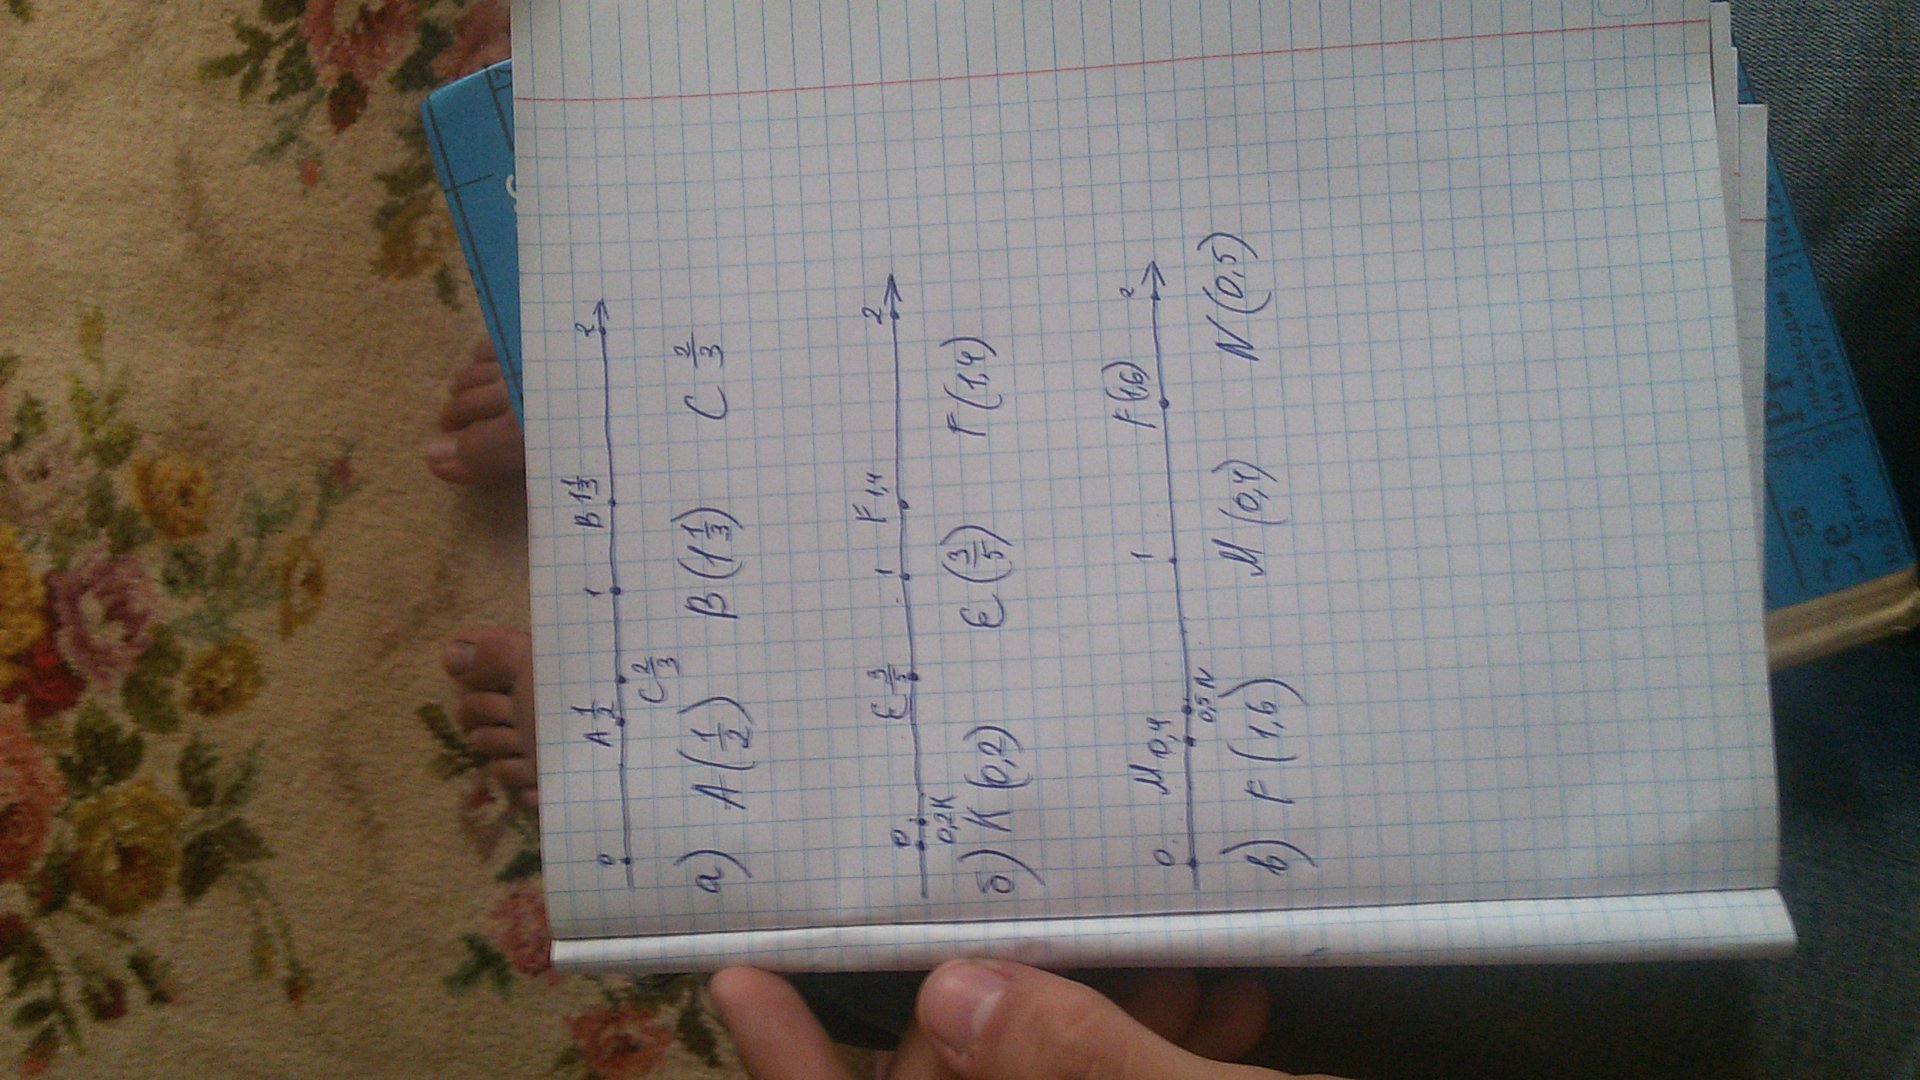 0 A 1/2 1 B 1 1/3 2
C 2/3
а) A (1/2) B (1 1/3) C 2/3
0 E 3/5 1 F 1,4 2
0,2 K
б) K (0,2) E (3/5) F (1,4)
0 M 0,4 1 F (1,6) 2
0,5 N
в) F (1,6) M (0,4) N (0,5)